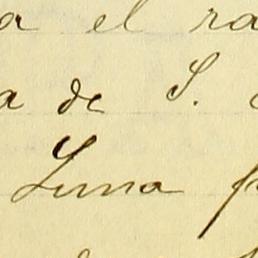 a el ra
a de S.
Luna